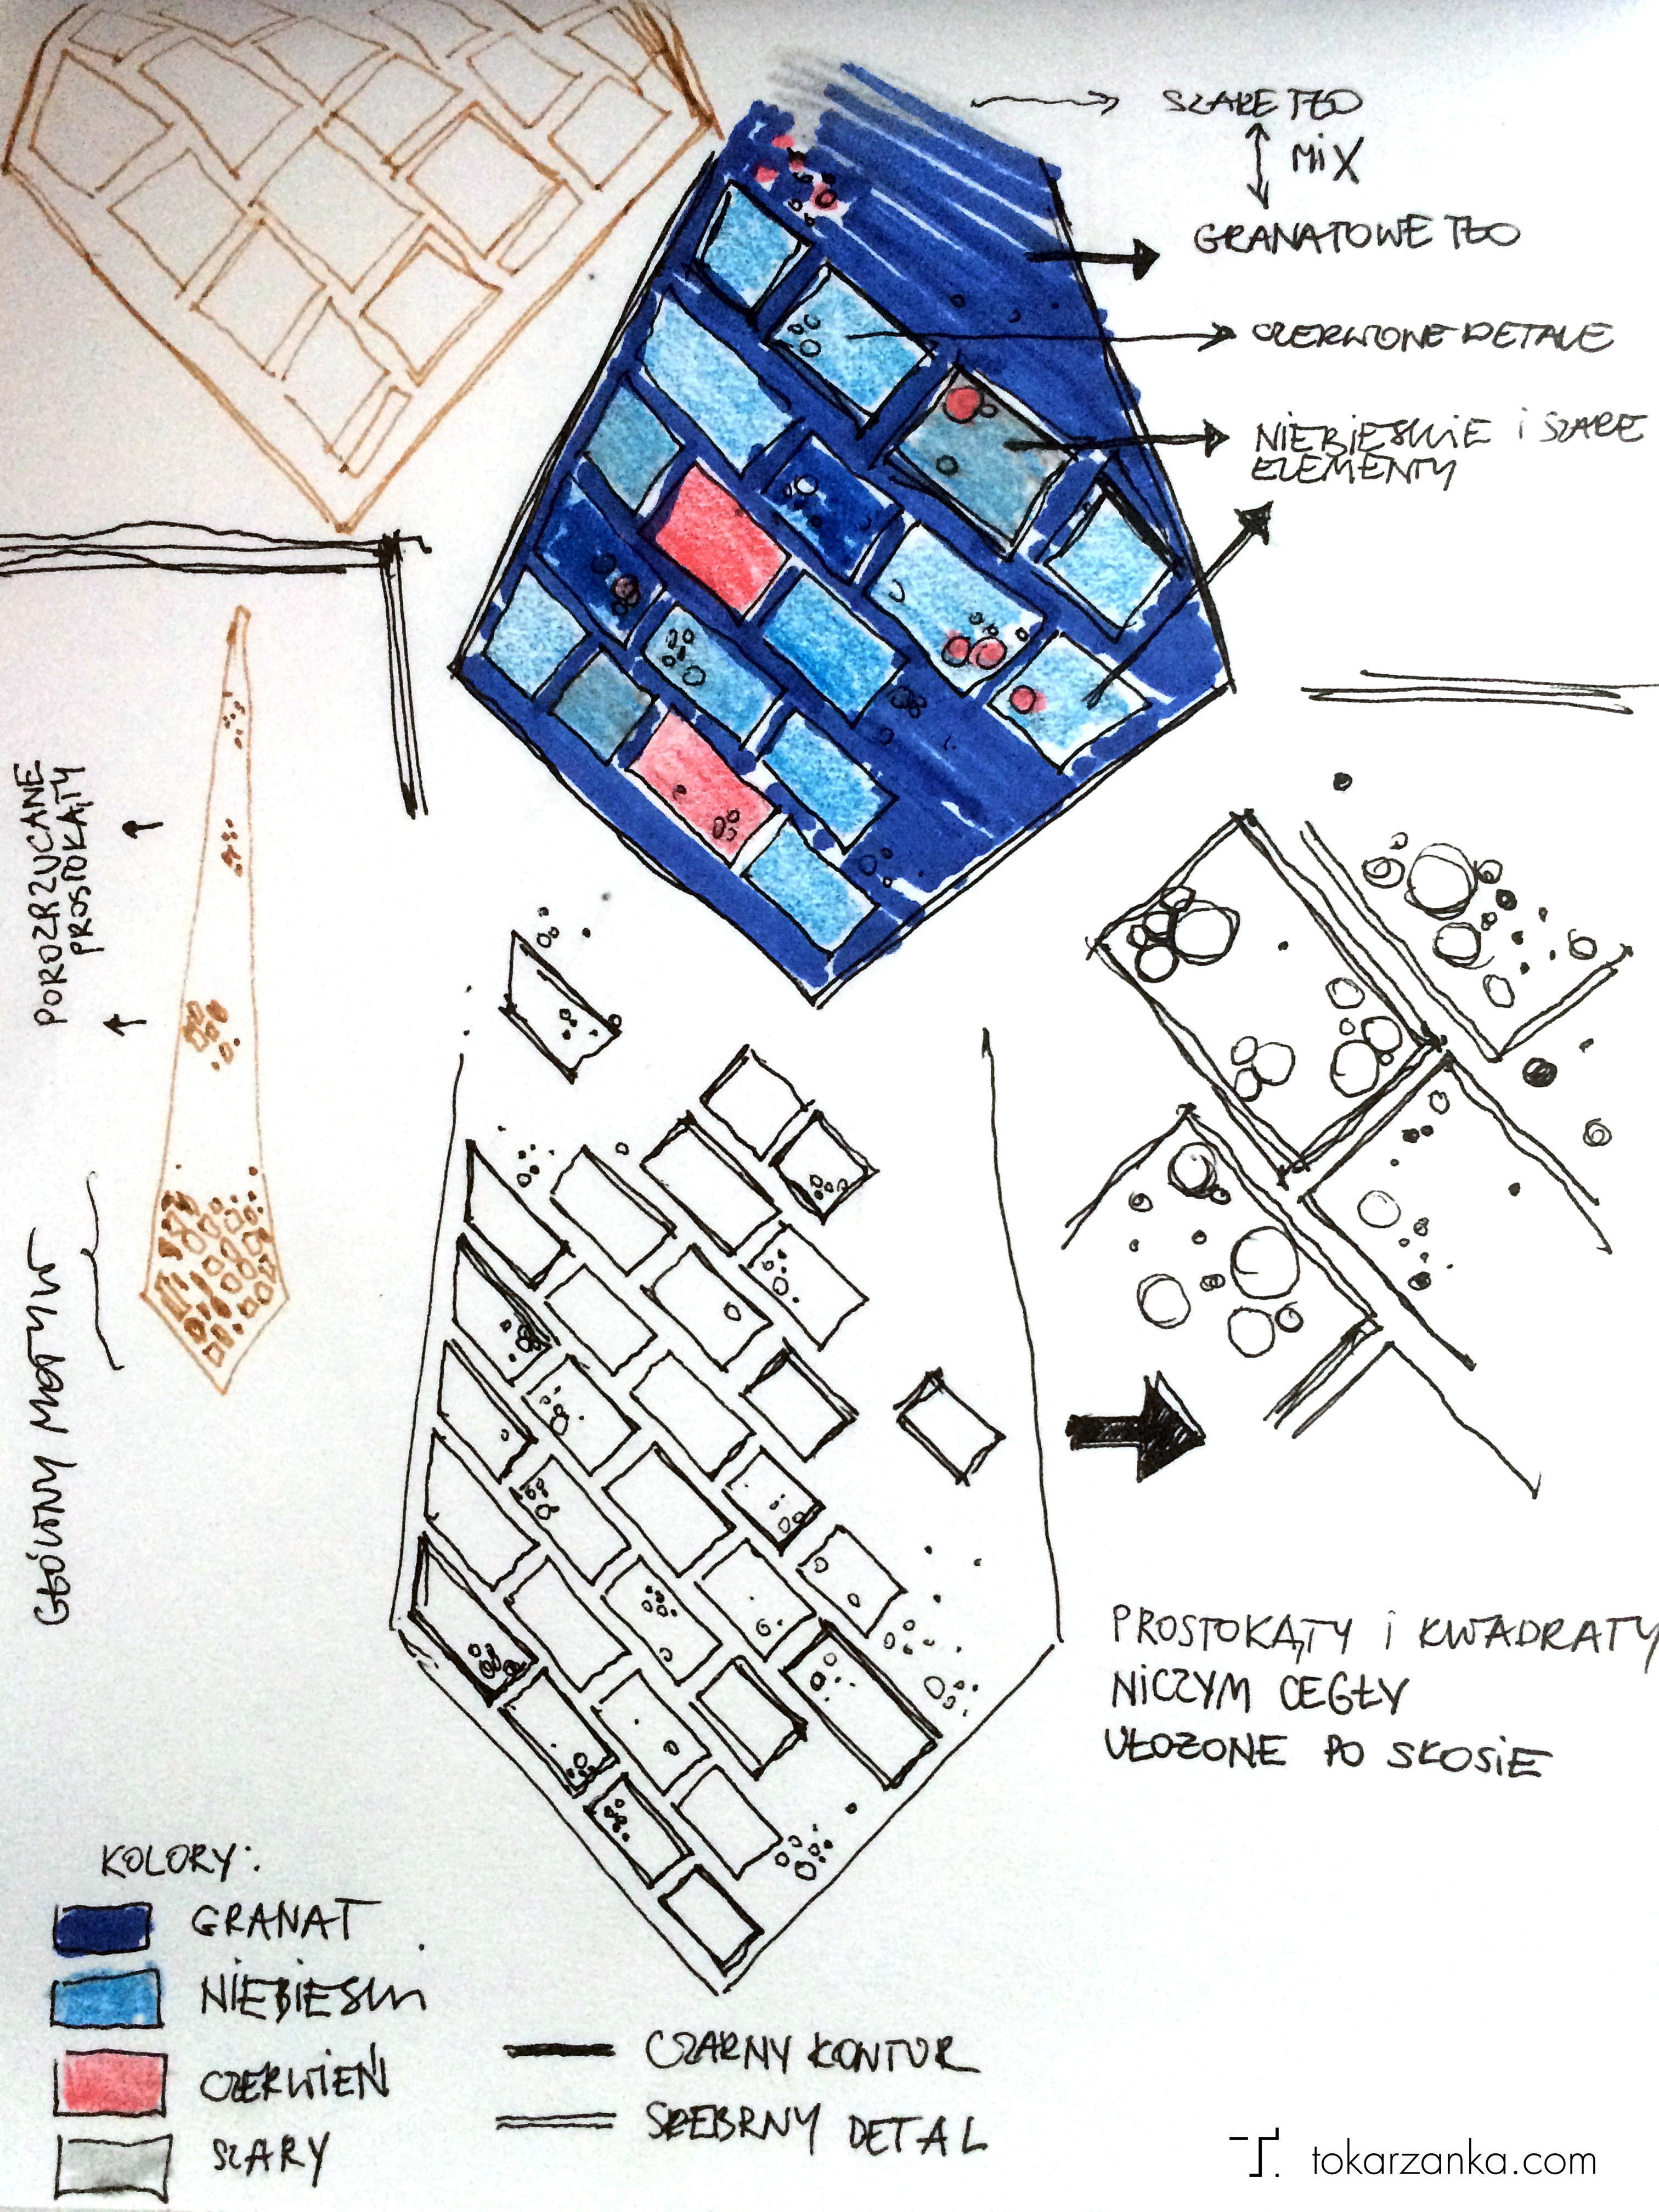 SZARE TŁO
MIX
GRANATOWE TŁO
CZERWONE DETALE
NIEBIESKIE i SZARE
ELEMENTY
POROZRZUCANE
PROSTOKĄTY
GŁÓWNY MOTYW
PROSTOKĄTY i KWADRATY
NICZYM CEGŁY
UŁOŻONE PO SKOSIE
KOLORY:
GRANAT
NIEBIESKI
CZERWIEŃ
SZARY
CZARNY KONTUR
SREBRNY DETAL
T. tokarzanka.com